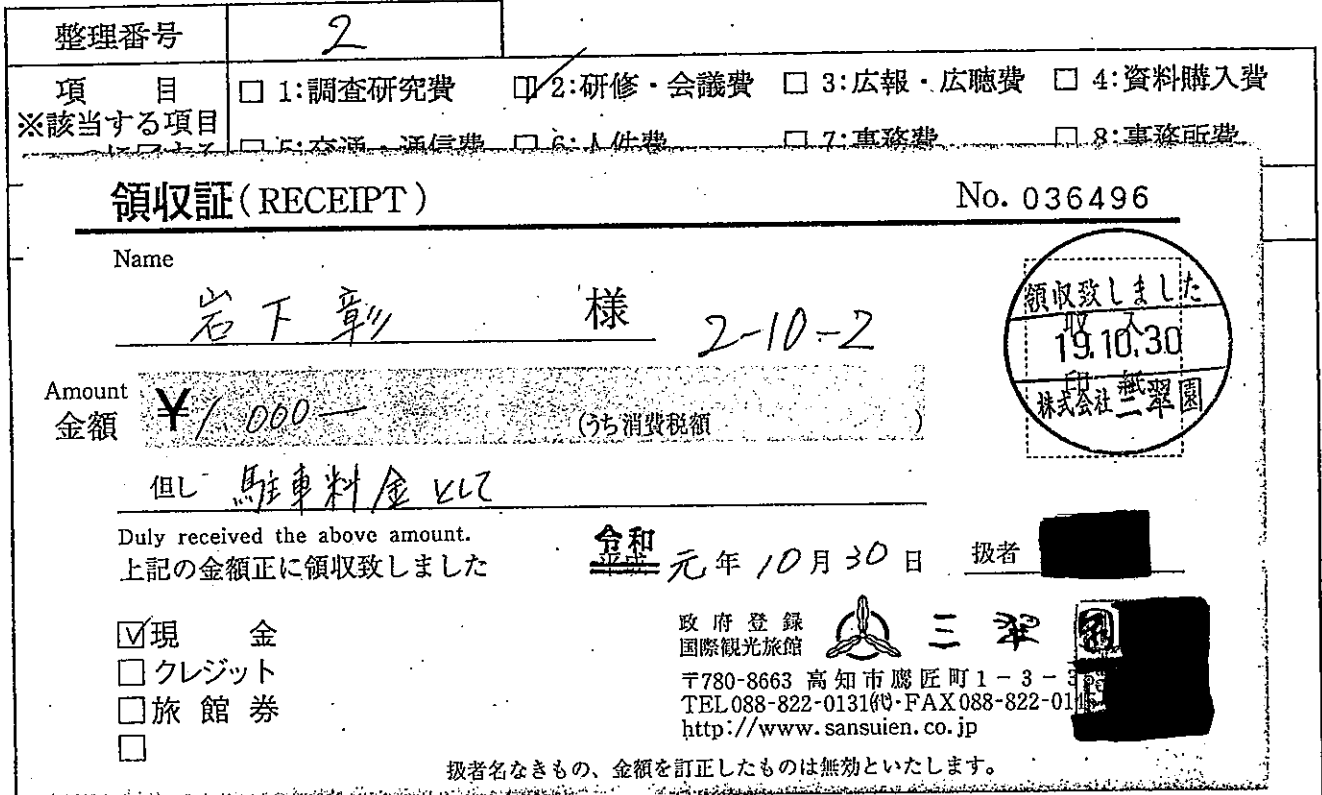 整理番号 2
項目 □ 1:調査研究費 ☑ 2:研修・会議費 □ 3:広報・広聴費 □ 4:資料購入費
※該当する項目
□ 5:交通・通信費 □ 6:人件費 □ 7:事務費 □ 8:事務所費
領収証(RECEIPT) No. 036496
Name
岩下 彰 様 2-10-2
領収致しました
収入
19.10.30
印紙
株式会社三翠園
Amount
金額 ¥1,000- (うち消費税額 )
但し 駐車料金として
Duly received the above amount.
上記の金額正に領収致しました
令和 平成 元年 10月30日 扱者
☑現金
□クレジット
□旅館券
□
政府登録
国際観光旅館 三翠園
〒780-8663 高知市鷹匠町1-3-
TEL088-822-0131(代)・FAX088-822-01
http://www.sansuien.co.jp
扱者名なきもの、金額を訂正したものは無効といたします。